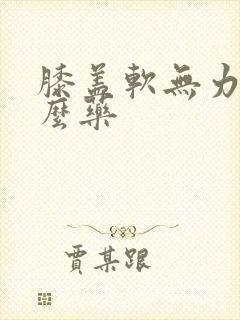 膝盖軟無力
麼藥
賈某跟